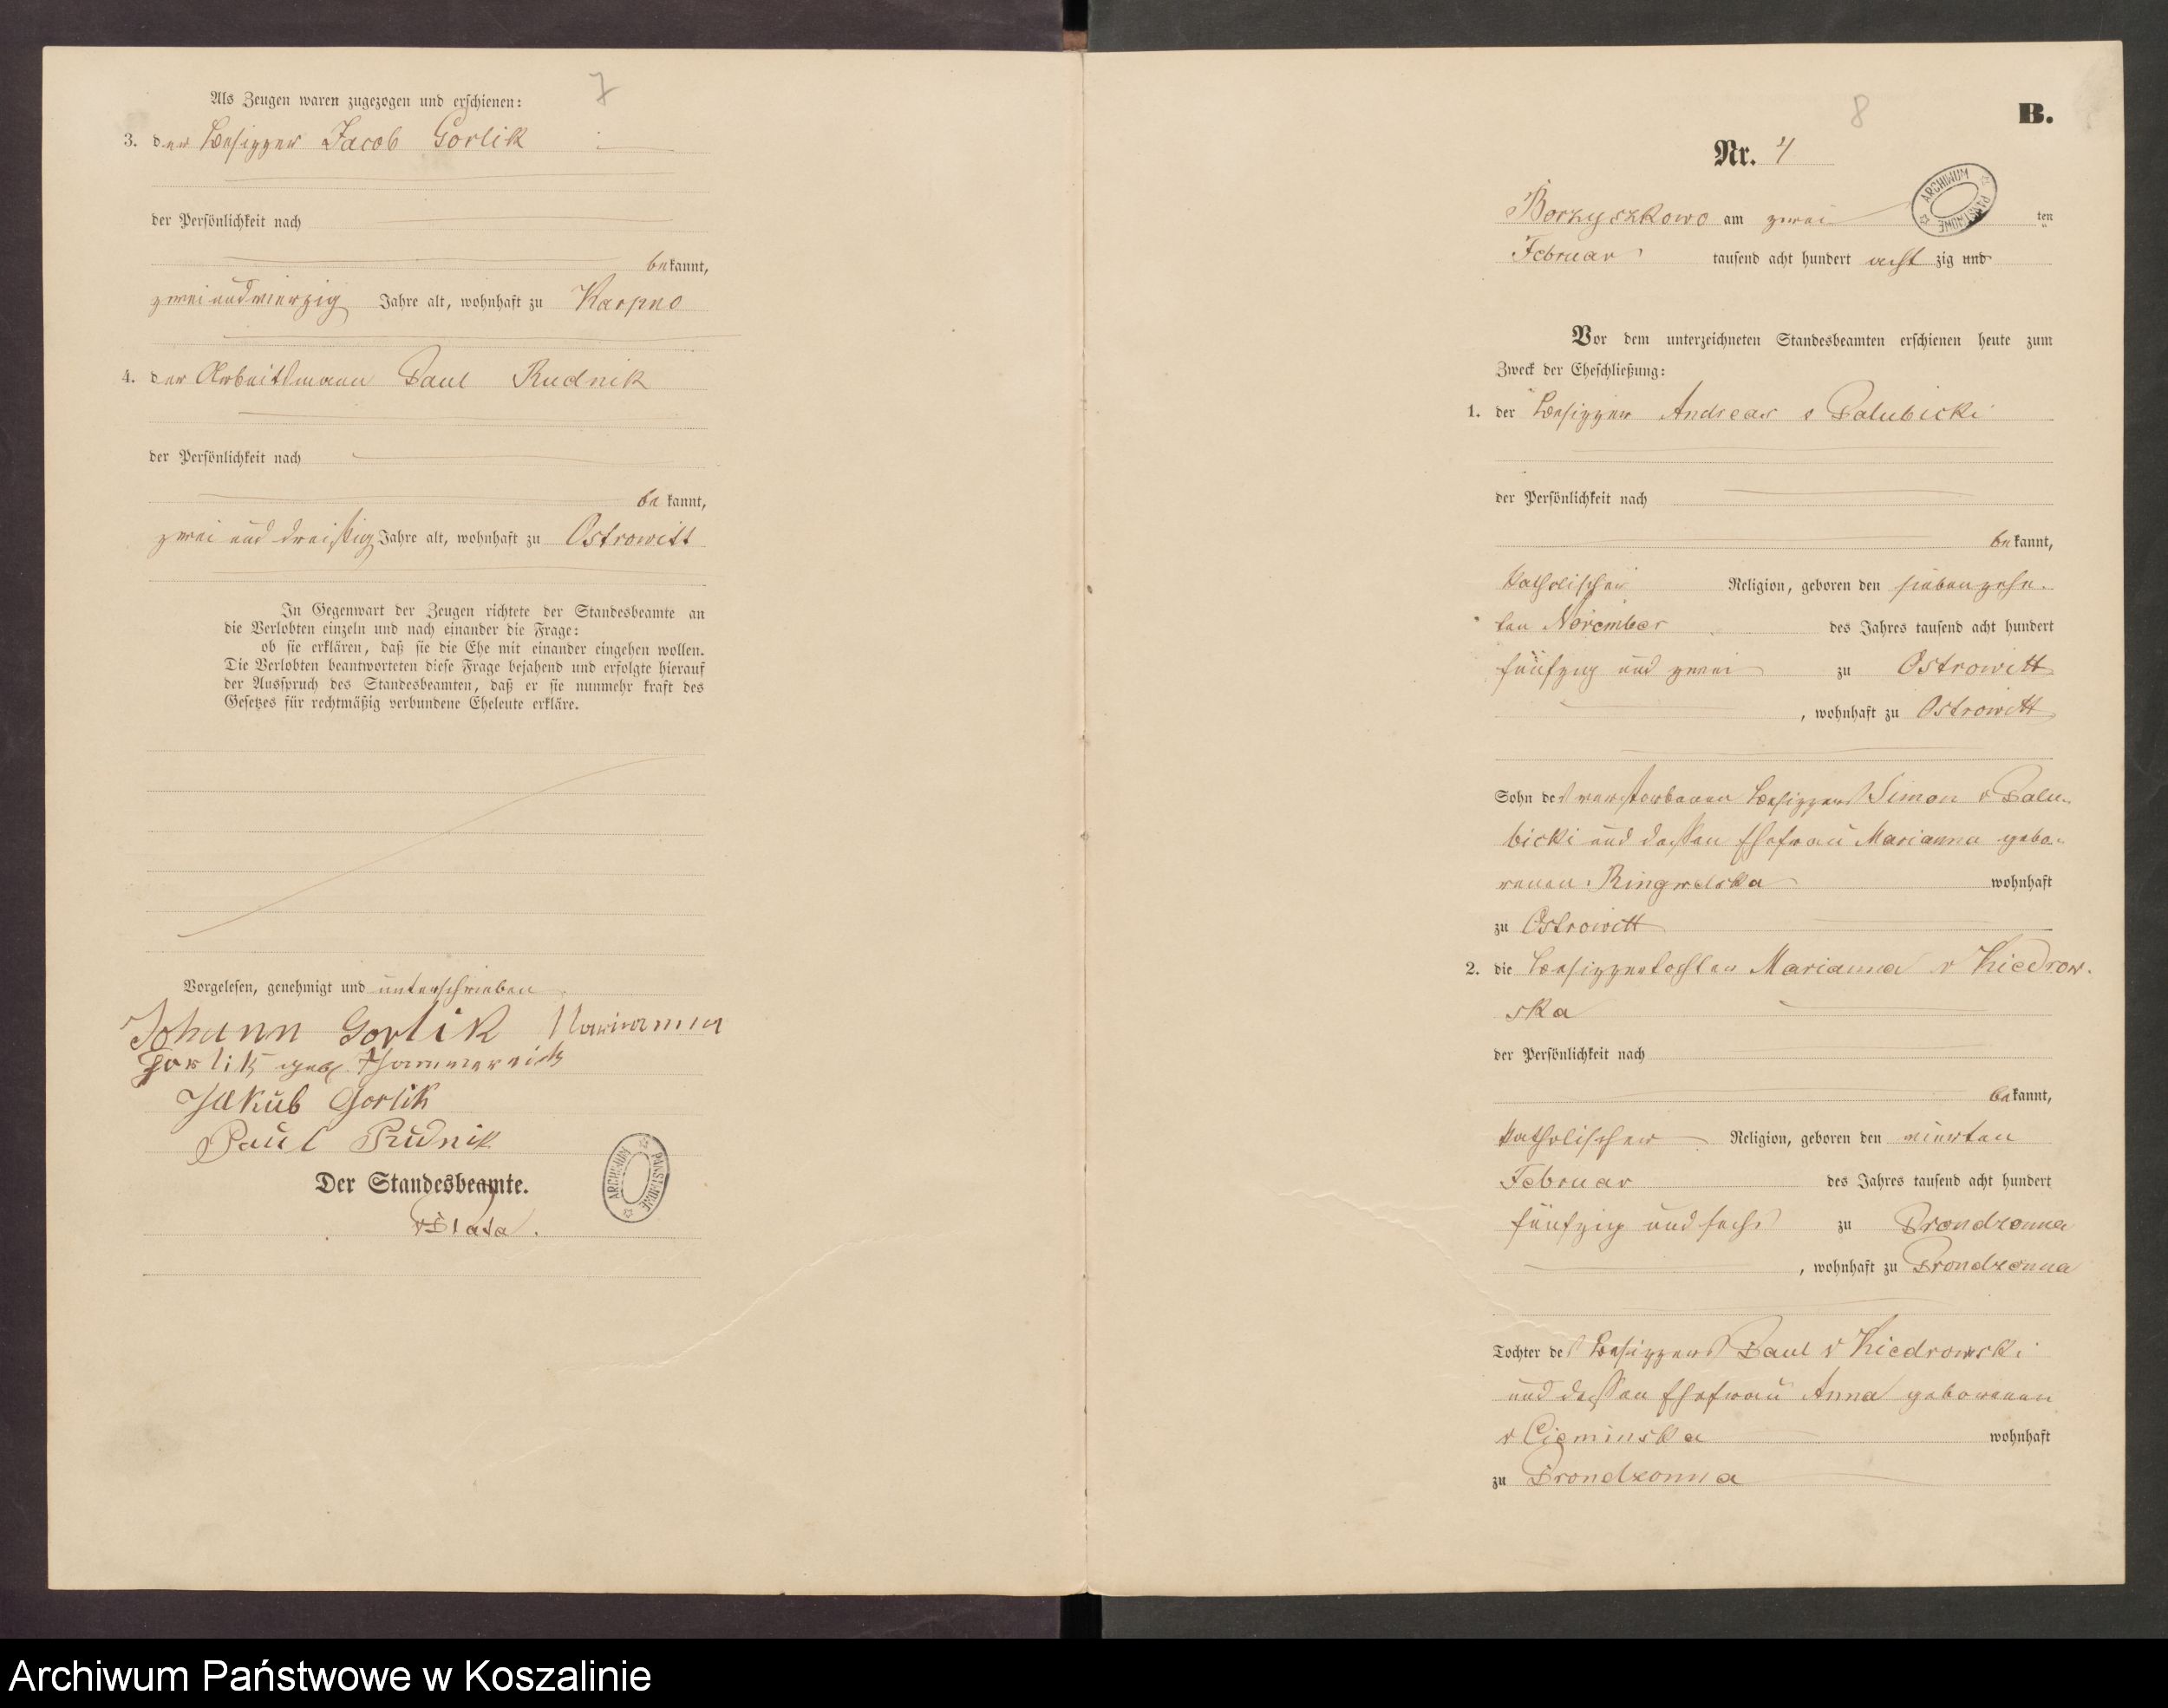 7
Als Zeugen waren zugezogen und erschienen:
3. der Besitzer Jacob Gorlik
der Persönlichkeit nach
bekannt,
zweiundvierzig Jahre alt, wohnhaft zu Karpno
4. der Arbeitsmann Paul Rudnik
der Persönlichkeit nach
bekannt,
zwei und dreißig Jahre alt, wohnhaft zu Ostrowitt
In Gegenwart der Zeugen richtete der Standesbeamte an
die Verlobten einzeln und nach einander die Frage:
ob sie erklären, daß sie die Ehe mit einander eingehen wollen.
Die Verlobten beantworteten diese Frage bejahend und erfolgte hierauf
der Ausspruch des Standesbeamten, daß er sie nunmehr kraft des
Gesetzes für rechtmäßig verbundene Eheleute erkläre.
Vorgelesen, genehmigt und unterschrieben
Johann Gorlik Marianna
Gorlik geb
Jakub Gorlik
Paul Rudnik
ARCHIWUM PAŃSTWOWE
Der Standesbeamte.
8
B.
Nr. 4
ARCHIWUM PAŃSTWOWE
Borzyszkowo am zwei ten
Februar tausend acht hundert acht zig und
Vor dem unterzeichneten Standesbeamten erschienen heute zum
Zweck der Eheschließung:
1. der Besitzer Andreas v Palubicki
der Persönlichkeit nach
bekannt,
katholischer Religion, geboren den siebenzehn-
ten November des Jahres tausend acht hundert
fünfzig und zwei zu Ostrowitt
, wohnhaft zu Ostrowitt
Sohn des verstorbenen Besitzers Simon v Palu-
bicki und dessen Ehefrau Marianna gebo-
renen Ringwelska wohnhaft
zu Ostrowitt
2. die Besitzertochter Marianna v Kiedrow-
ska
der Persönlichkeit nach
bekannt,
katholischer Religion, geboren den vierten
Februar des Jahres tausend acht hundert
fünfzig und sechs zu Prondzonna
, wohnhaft zu Prondzonna
Tochter des Besitzers Paul v Kiedrowski
und dessen Ehefrau Anna geborenen
v Cieminska wohnhaft
zu Prondzonna
Archiwum Państwowe w Koszalinie